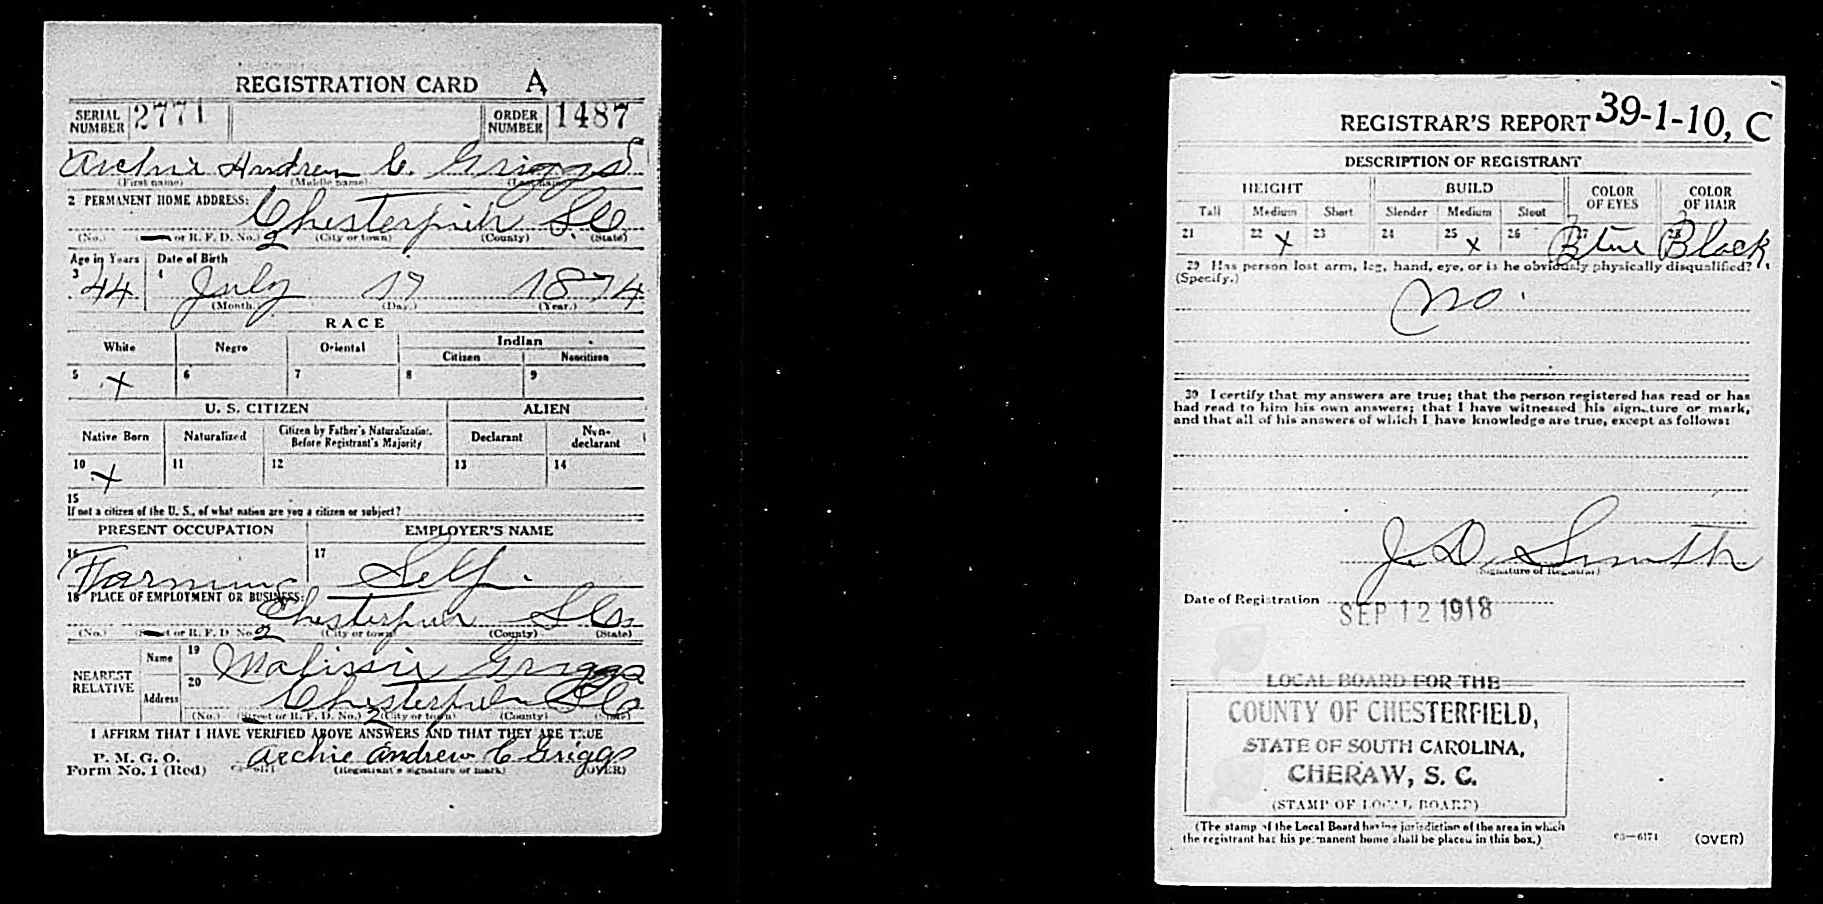 REGISTRATION CARD A
SERIAL NUMBER 2771 ORDER NUMBER 1487
Archie Andrew C. Griggs
(First name) (Middle name) (Last name)
2 PERMANENT HOME ADDRESS:
Chesterfield S C
(No.) or R. F. D. No.) 2 (City or town) (County) (State)
Age in Years Date of Birth
3 44 4 July 17 1874
(Month.) (Day.) (Year.)
RACE
White Negro Oriental Indian
Citizen Noncitizen
5 X 6 7 8 9
U. S. CITIZEN ALIEN
Native Born Naturalized Citizen by Father's Naturalization Before Registrant's Majority Declarant Non-declarant
10 X 11 12 13 14
15
If not a citizen of the U. S., of what nation are you a citizen or subject?
PRESENT OCCUPATION EMPLOYER'S NAME
16 Farming 17 Self.
18 PLACE OF EMPLOYMENT OR BUSINESS:
Chesterfield S C
(No.) (Street or R. F. D. No.) 2 (City or town) (County) (State)
NEAREST RELATIVE Name 19 Malissie Griggs
Address 20 Chesterfield S C
(No.) (Street or R. F. D. No.) 2 (City or town) (County) (State)
I AFFIRM THAT I HAVE VERIFIED ABOVE ANSWERS AND THAT THEY ARE TRUE
P. M. G. O.
Form No. 1 (Red) 03-6171 Archie Andrew C Griggs
(Registrant's signature or mark) (OVER)
REGISTRAR'S REPORT 39-1-10, C
DESCRIPTION OF REGISTRANT
HEIGHT BUILD COLOR OF EYES COLOR OF HAIR
Tall Medium Short Slender Medium Stout
21 22 X 23 24 25 X 26 27 Blue 28 Black
29 Has person lost arm, leg, hand, eye, or is he obviously physically disqualified?
(Specify.)
No.
30 I certify that my answers are true; that the person registered has read or has
had read to him his own answers; that I have witnessed his signature or mark,
and that all of his answers of which I have knowledge are true, except as follows:
J. D. Smith
(Signature of Registrar)
Date of Registration SEP 12 1918
LOCAL BOARD FOR THE
COUNTY OF CHESTERFIELD,
STATE OF SOUTH CAROLINA,
CHERAW, S. C.
(STAMP OF LOCAL BOARD)
(The stamp of the Local Board having jurisdiction of the area in which
the registrant has his permanent home shall be placed in this box.)
03-6171 (OVER)